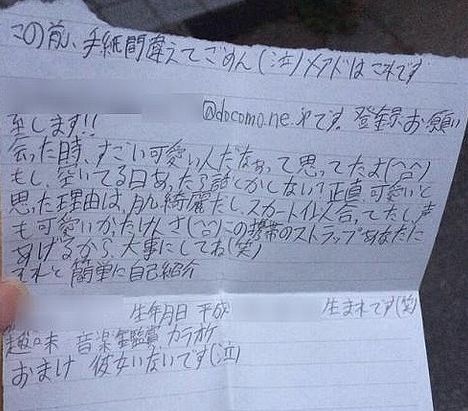 この前、手紙間違えてごめん(泣)メアドはこれです
@docomo.ne.jpです。登録お願い
至します!!
会った時、すごい可愛い人だなぁって思ってたよ(^o^)
もし、空いてる日あったら話しかしない?正直、可愛いと
思った理由は、肌綺麗だし、スカート似合ってたし、声
も可愛いかったけんさ(^-^)この携帯のストラップあなたに
あげるから、大事にしてね(笑)
それと簡単に自己紹介
生年月日 平成 生まれです(笑)
趣味 音楽鑑賞 カラオケ
おまけ 彼女いないです(泣)